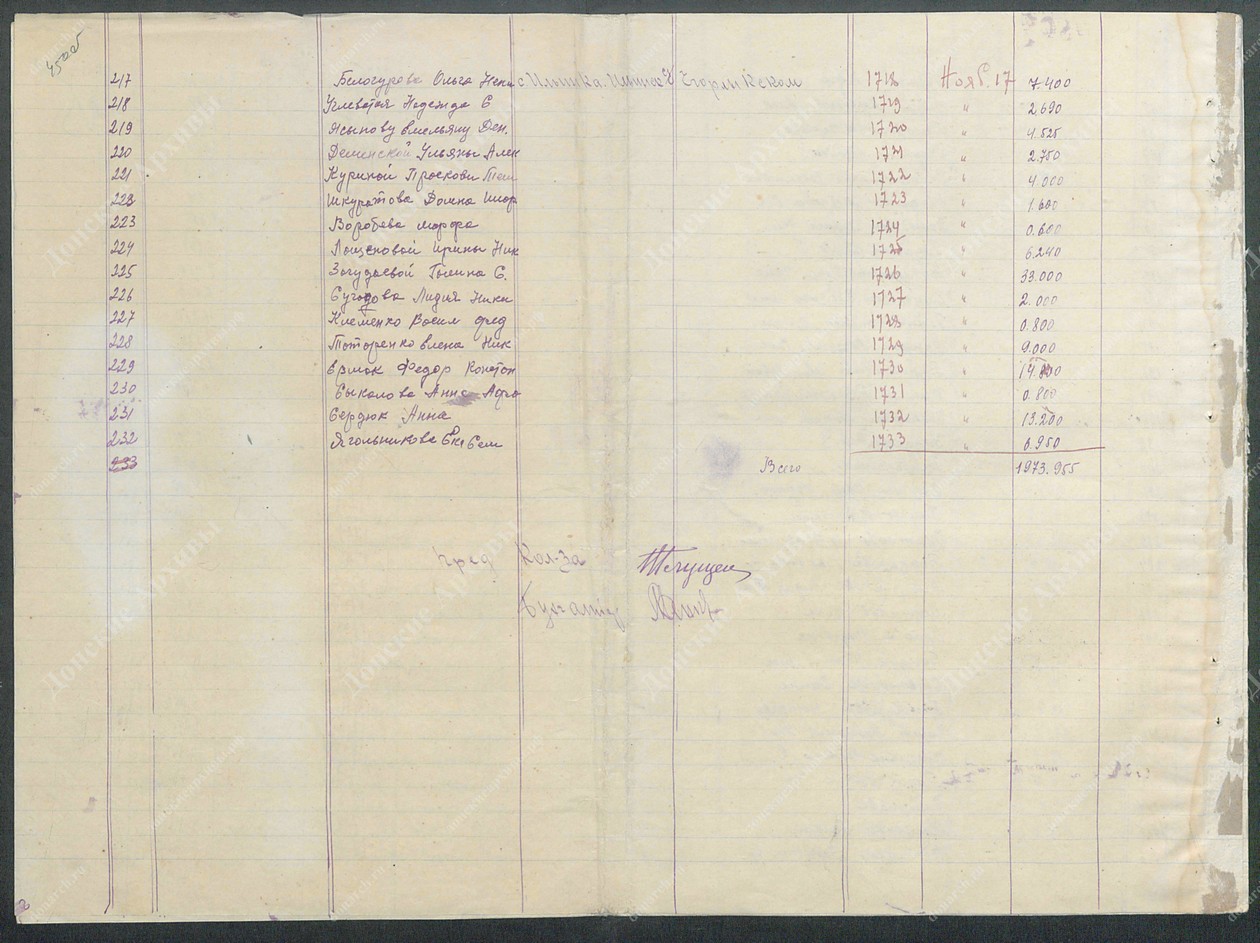 217 Белогурова Ольга Ники с Ильинка. Ильинка Егорлыкском 1718 Нояб. 17 7.400
218 Углеватая Надежда Е 1719 " 2.690
219 Ясынову Емельяну Ден. 1720 " 4.525
220 Деминской Ульяны Алек 1721 " 2.750
221 Куриной Просковы 1722 " 4.000
222 Шкуратова Домна 1723 " 1.600
223 Воробева марфа 1724 " 0.600
224 Лощеновой ирины Ник 1725 " 6.240
225 Загудаевой Галина Е. 1726 " 33.000
226 Лидия Ники 1727 " 2.000
227 Клеменко Васил фед 1728 " 0.800
228 Елена Ник 1729 " 9.000
229 Ермак Федор Констан 1730 "
230 Быкалова Анна Афа 1731 " 0.800
231 Сердюк Анна 1732 " 13.200
232 Ягольникова Ек Сем 1733 " 6.950
233 Всего 1973.955
Пред Кол-за
Бухгалтер